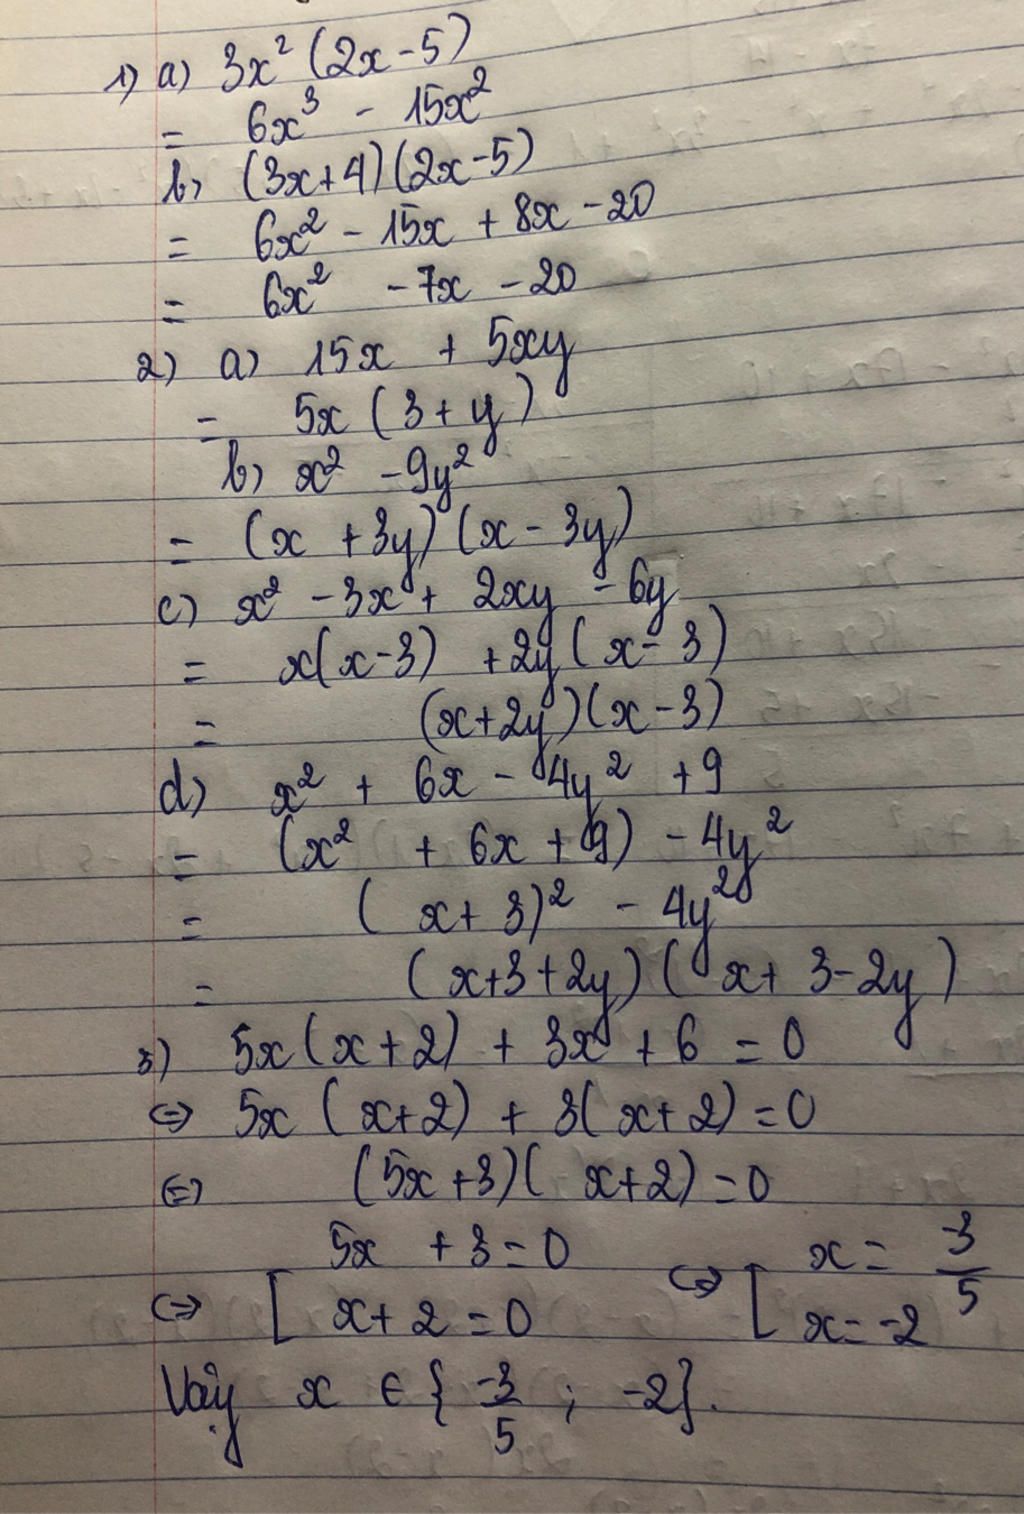 1) a) 3x² (2x-5)
= 6x³ - 15x²
b) (3x+4)(2x-5)
= 6x² - 15x + 8x - 20
= 6x² - 7x - 20
2) a) 15x + 5xy
= 5x (3+y)
b) x² - 9y²
= (x + 3y) (x - 3y)
c) x² - 3x + 2xy - 6y
= x(x-3) + 2y (x-3)
= (x+2y)(x-3)
d) x² + 6x - 4y² + 9
= (x² + 6x + 9) - 4y²
= (x+3)² - 4y²
= (x+3+2y) (x+3-2y)
3) 5x(x+2) + 3x + 6 = 0
⇔ 5x (x+2) + 3(x+2) = 0
⇔ (5x+3)(x+2) = 0
⇔ [ 5x + 3 = 0 ⇔ [ x = -3/5
x+2 = 0 x = -2
Vậy x ∈ { -3/5 ; -2}.